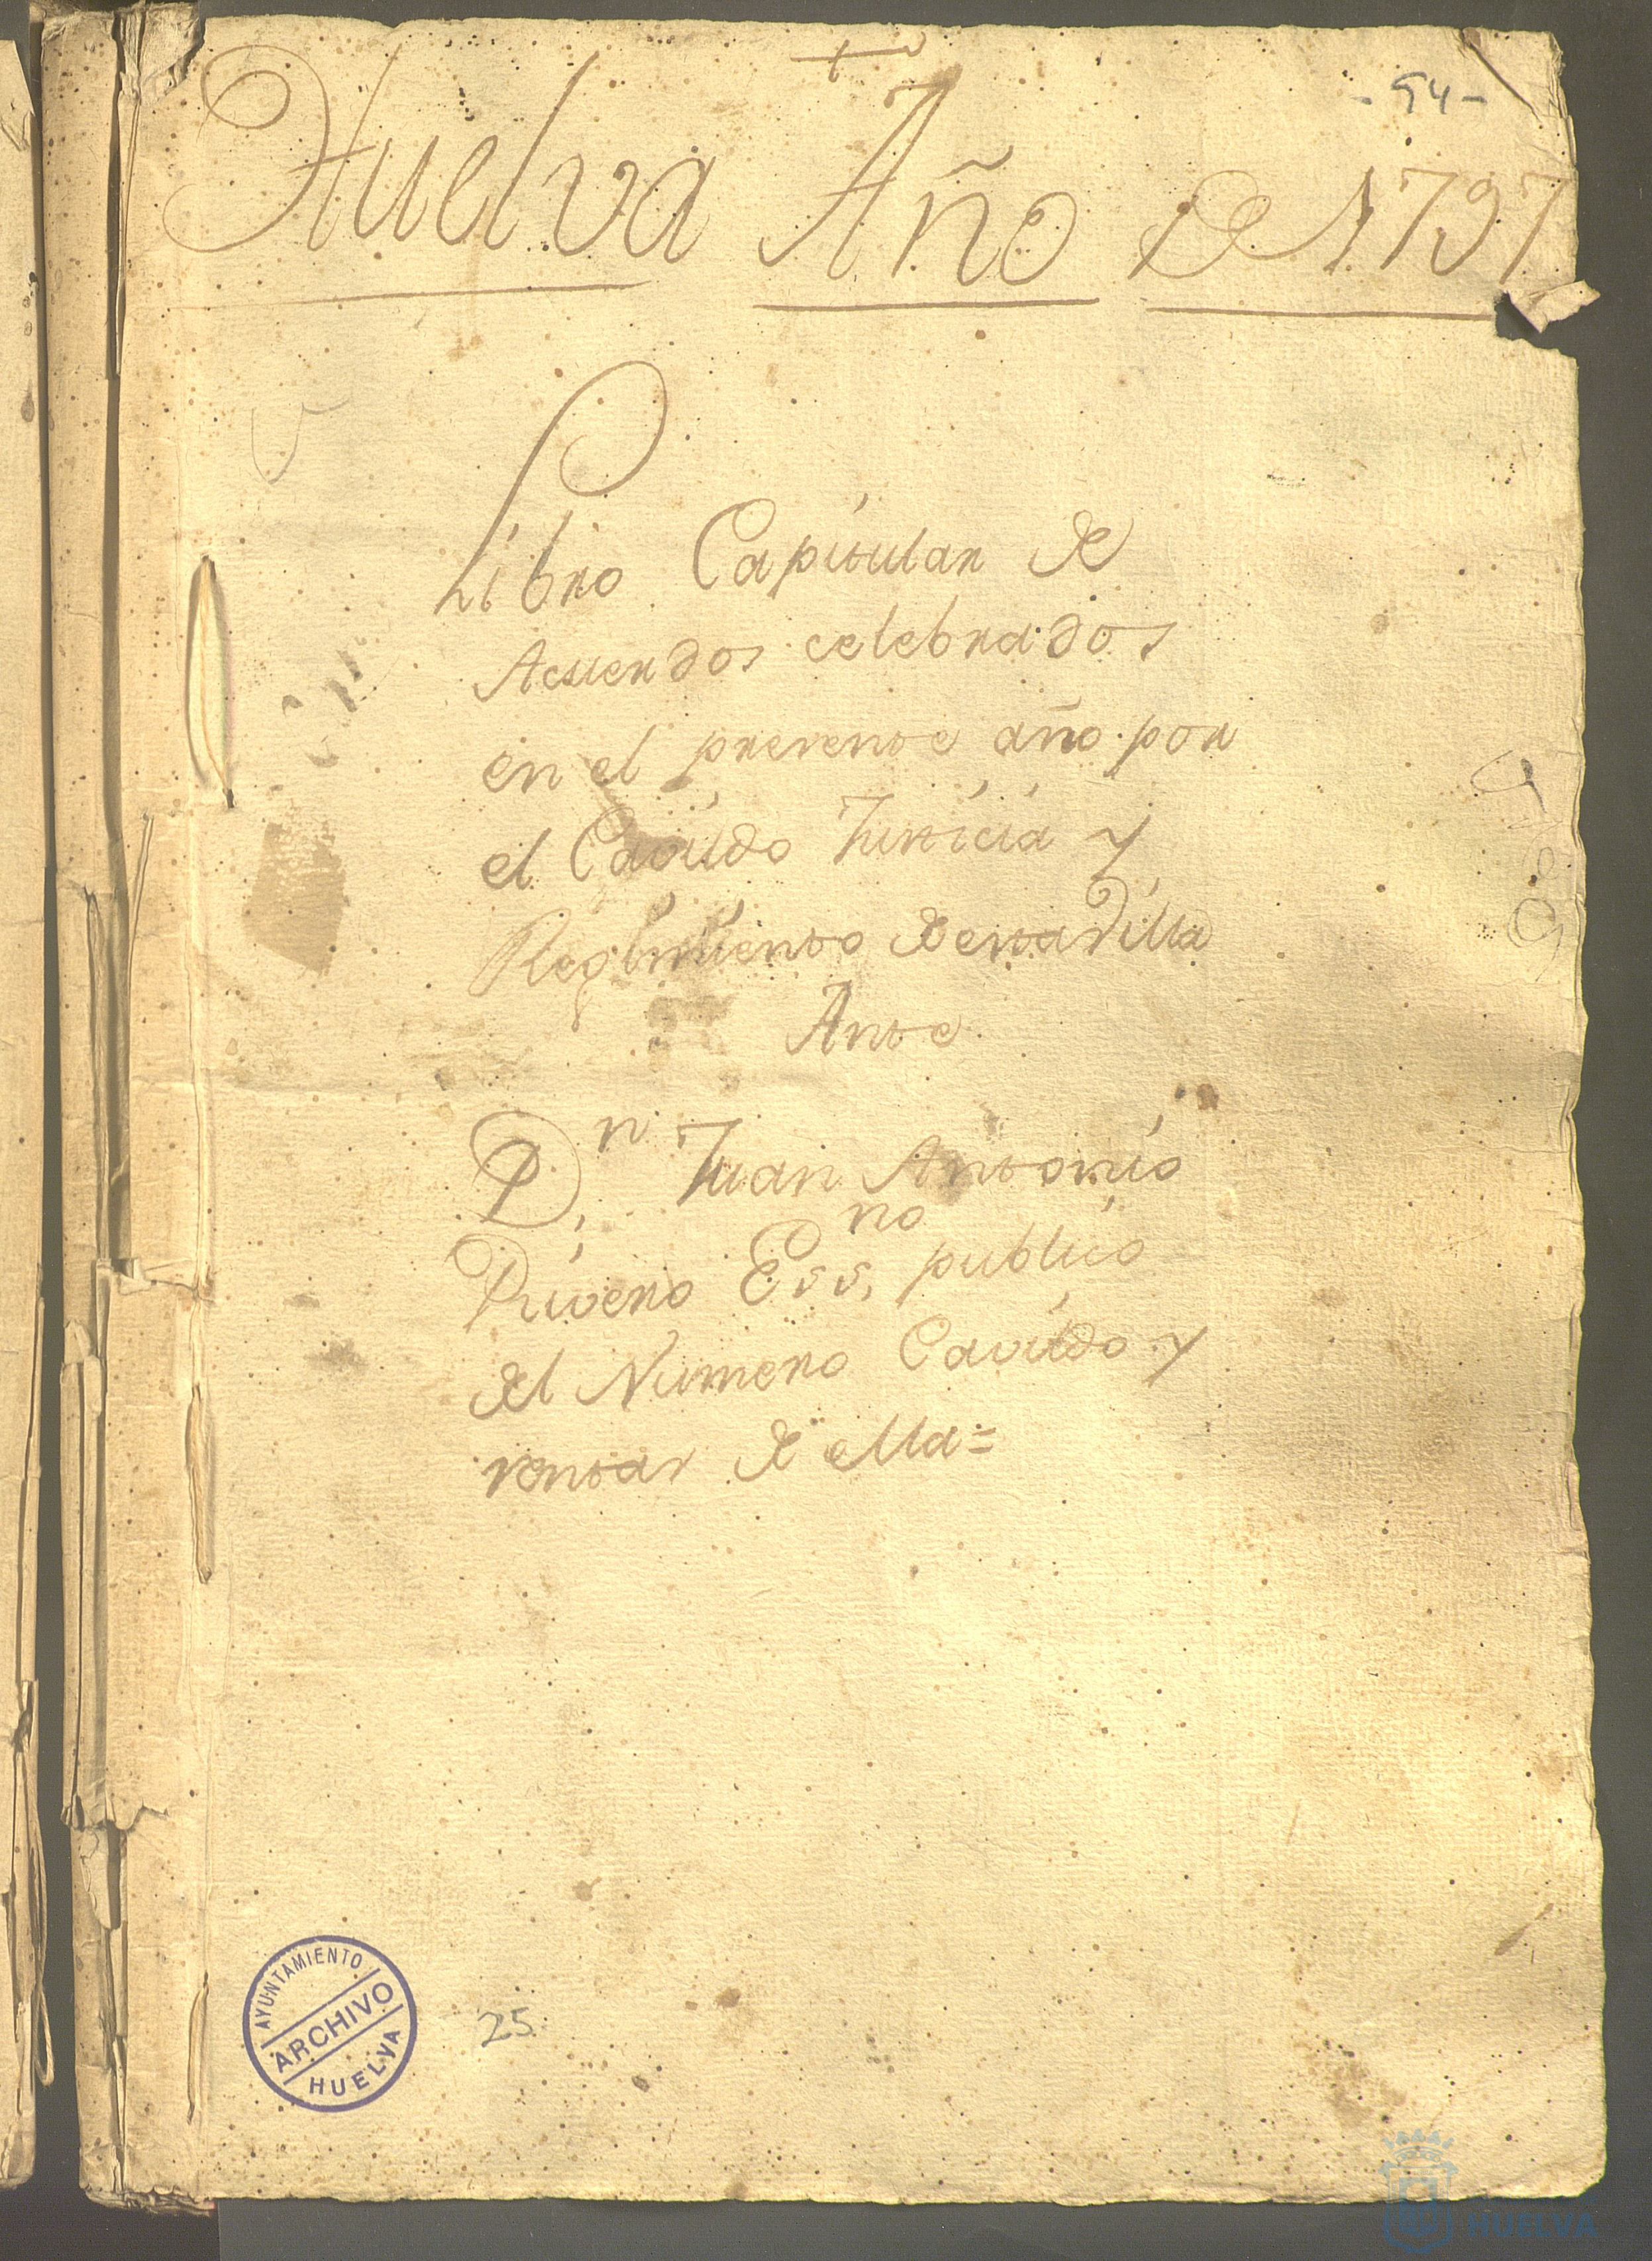 - 94 -
Huelva Año de 1797
Libro Capitular de
Acuerdos celebrados
en el presente año por
el Cavildo Justicia y
Regimiento de esta Villa
Ante
D.n Juan Antonio
Rivero Ess.no publico
del Numero Cavildo y
rentas de ella =
AYUNTAMIENTO
ARCHIVO
HUELVA
25
HUELVA